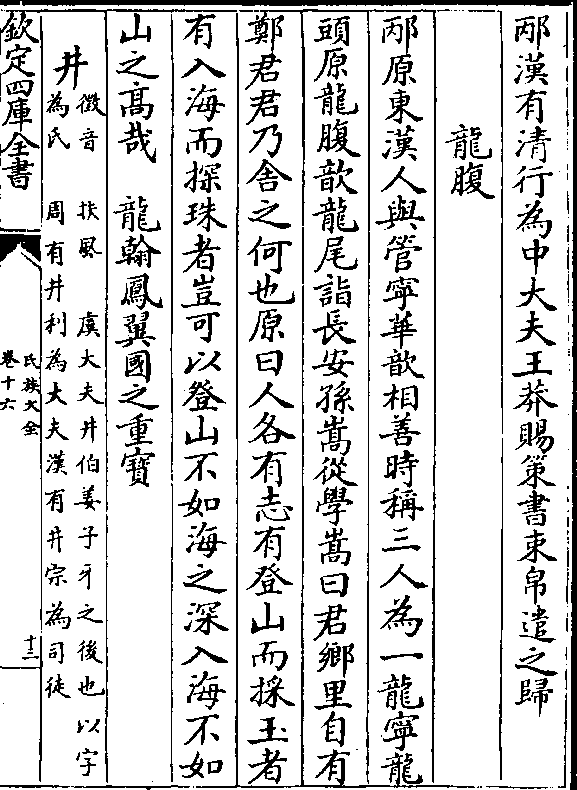 邴漢有清行為中大夫王莽賜策書束帛遣之歸
龍腹
邴原東漢人與管寧華歆相善時稱三人為一龍寧龍
頭原龍腹歆龍尾詣長安孫嵩從學嵩曰君鄉里自有
鄭君君乃舍之何也原曰人各有志有登山而採玉者
有入海而探珠者豈可以登山不如海之深入海不如
山之高哉　龍翰鳳翼國之重寶
井　徵音　扶風　虞大夫井伯姜子牙之後也以字
為氏　周有井利為大夫漢有井宗為司徒
欽定四庫全書
氏族大全
卷十六
十三